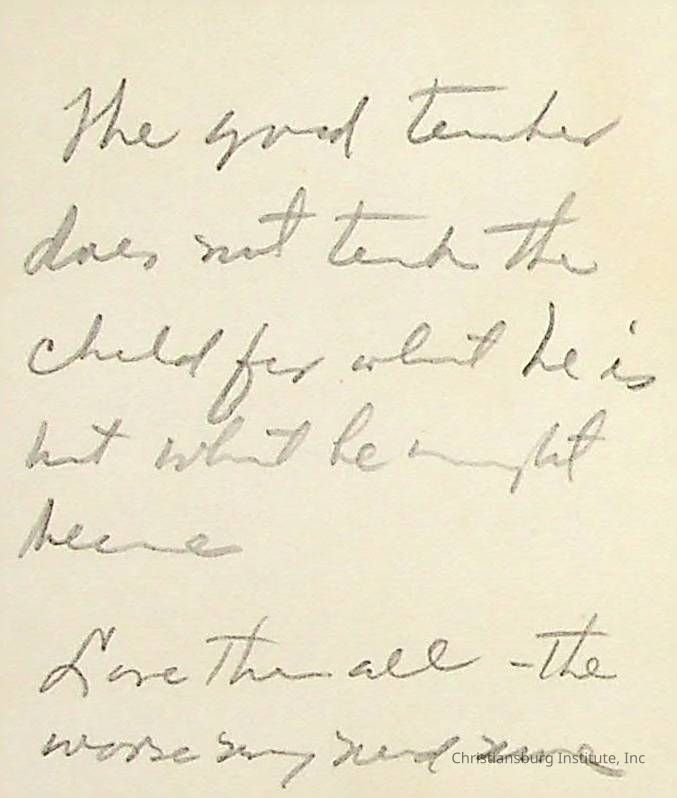 The good teacher
does not teach the
child for what he is
but what he might
become
Love them all - the
worse may need more
Christiansburg Institute, Inc